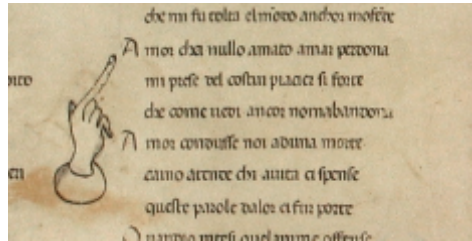 che mi fu tolta el modo anchor moffēde
Amor cha nullo amato amar perdona
mi prese del costui piacer si forte
che come uedi ancor nomabandona
Amor condusse noi aduna morte
caino atende chi auita ci spense
queste parole dalor ci fur porte
Quandio intesi quelanime offense